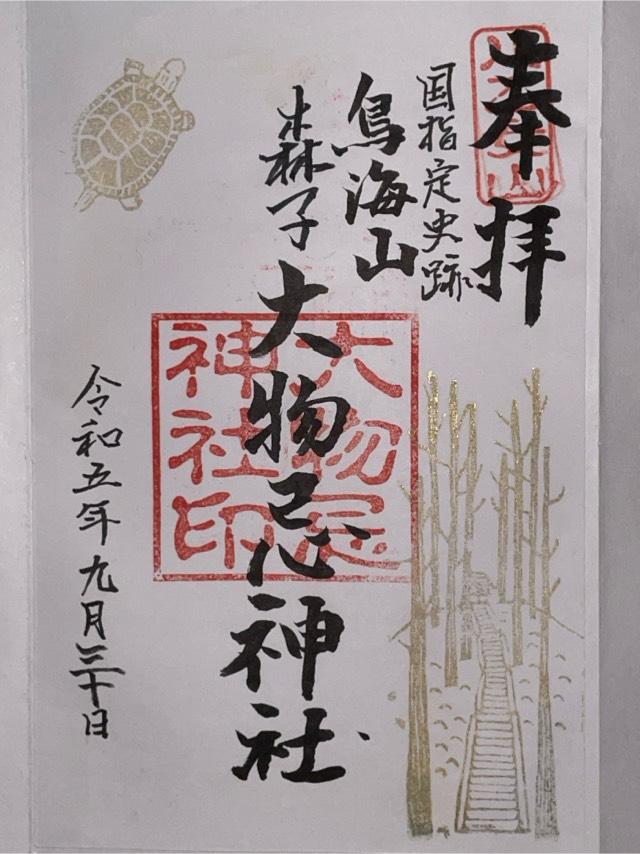 奉拝
国指定史跡
鳥海山
森子
大物忌神社
大物忌
神社印
令和五年九月三十日